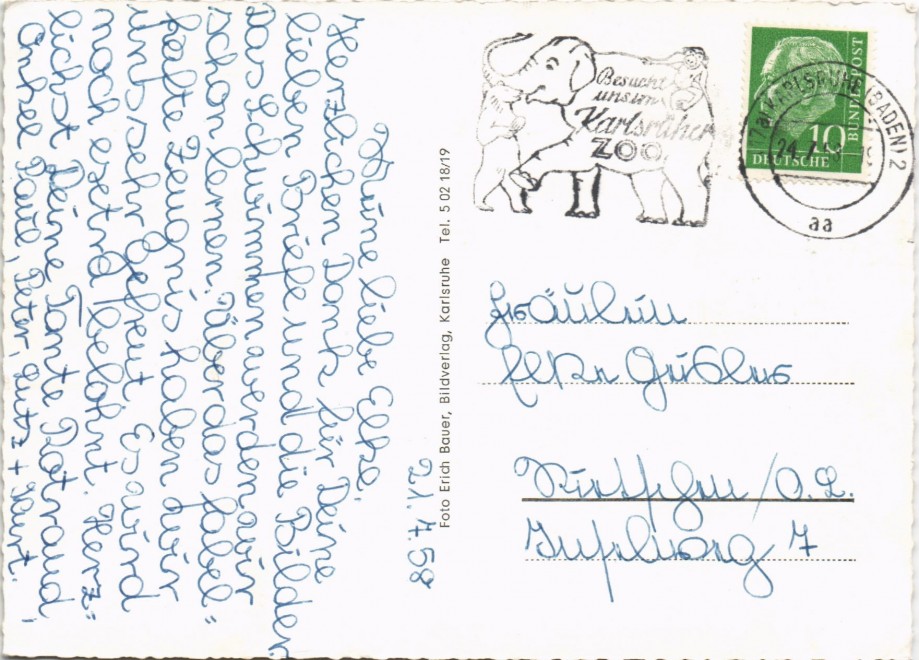 21.7.58
Meine liebe Elke,
Herzlichen Dank für Deine
lieben Briefe und die Bilder.
Das Schwimmen werden wir
schon lernen. Über das fabel-
hafte Zeugnis haben wir
uns sehr gefreut. Es wird
noch extra belohnt. Herz-
lichst Deine Tante Rotraud,
Onkel Paul, Peter, Lutz + Kurt.
Foto Erich Bauer, Bildverlag, Karlsruhe Tel. 5 02 18/19
Besucht
unsern
Karlsruher
ZOO
KARLSRUHE (BADEN) 2
aa
10
DEUTSCHE
BUNDESPOST
Fräulein
Elke
7